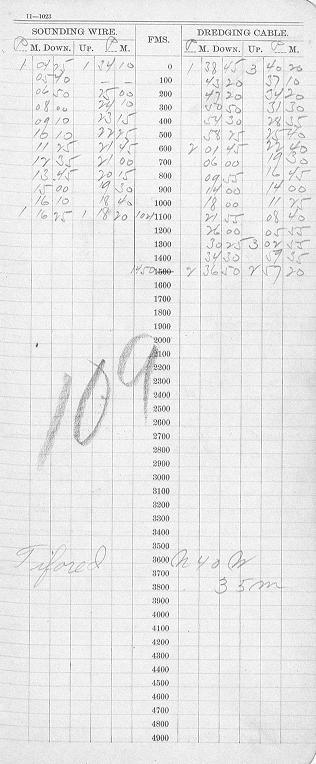 11—1023
SOUNDING WIRE. FMS. DREDGING CABLE.
P M. DOWN. UP. P M. P M. DOWN. UP. P M.
1 04 25 1 34 10 0 1 38 45 3 40 20
05 40 — — 100 43 20 37 10
06 50 25 00 200 47 20 34 20
08 00 24 10 300 50 50 31 30
09 10 23 15 400 54 30 28 35
10 10 22 25 500 58 25 25 40
11 25 21 45 600 2 01 45 22 40
12 35 21 00 700 06 00 19 30
13 45 20 15 800 09 55 16 45
15 00 19 30 900 14 00 14 00
16 10 18 40 1000 18 00 11 25
1 16 25 1 18 20 1021 1100 21 55 08 40
1200 26 00 05 55
1300 30 25 3 02 55
1400 34 30 59 35
1450 1500 2 36 50 2 57 20
1600
1700
1800
1900
2000
2100
2200
2300
2400
2500
2600
2700
2800
2900
3000
3100
3200
3300
3400
3500
3600
3700
3800
3900
4000
4100
4200
4300
4400
4500
4600
4700
4800
4900
109
Tifored N 40 W
35 m